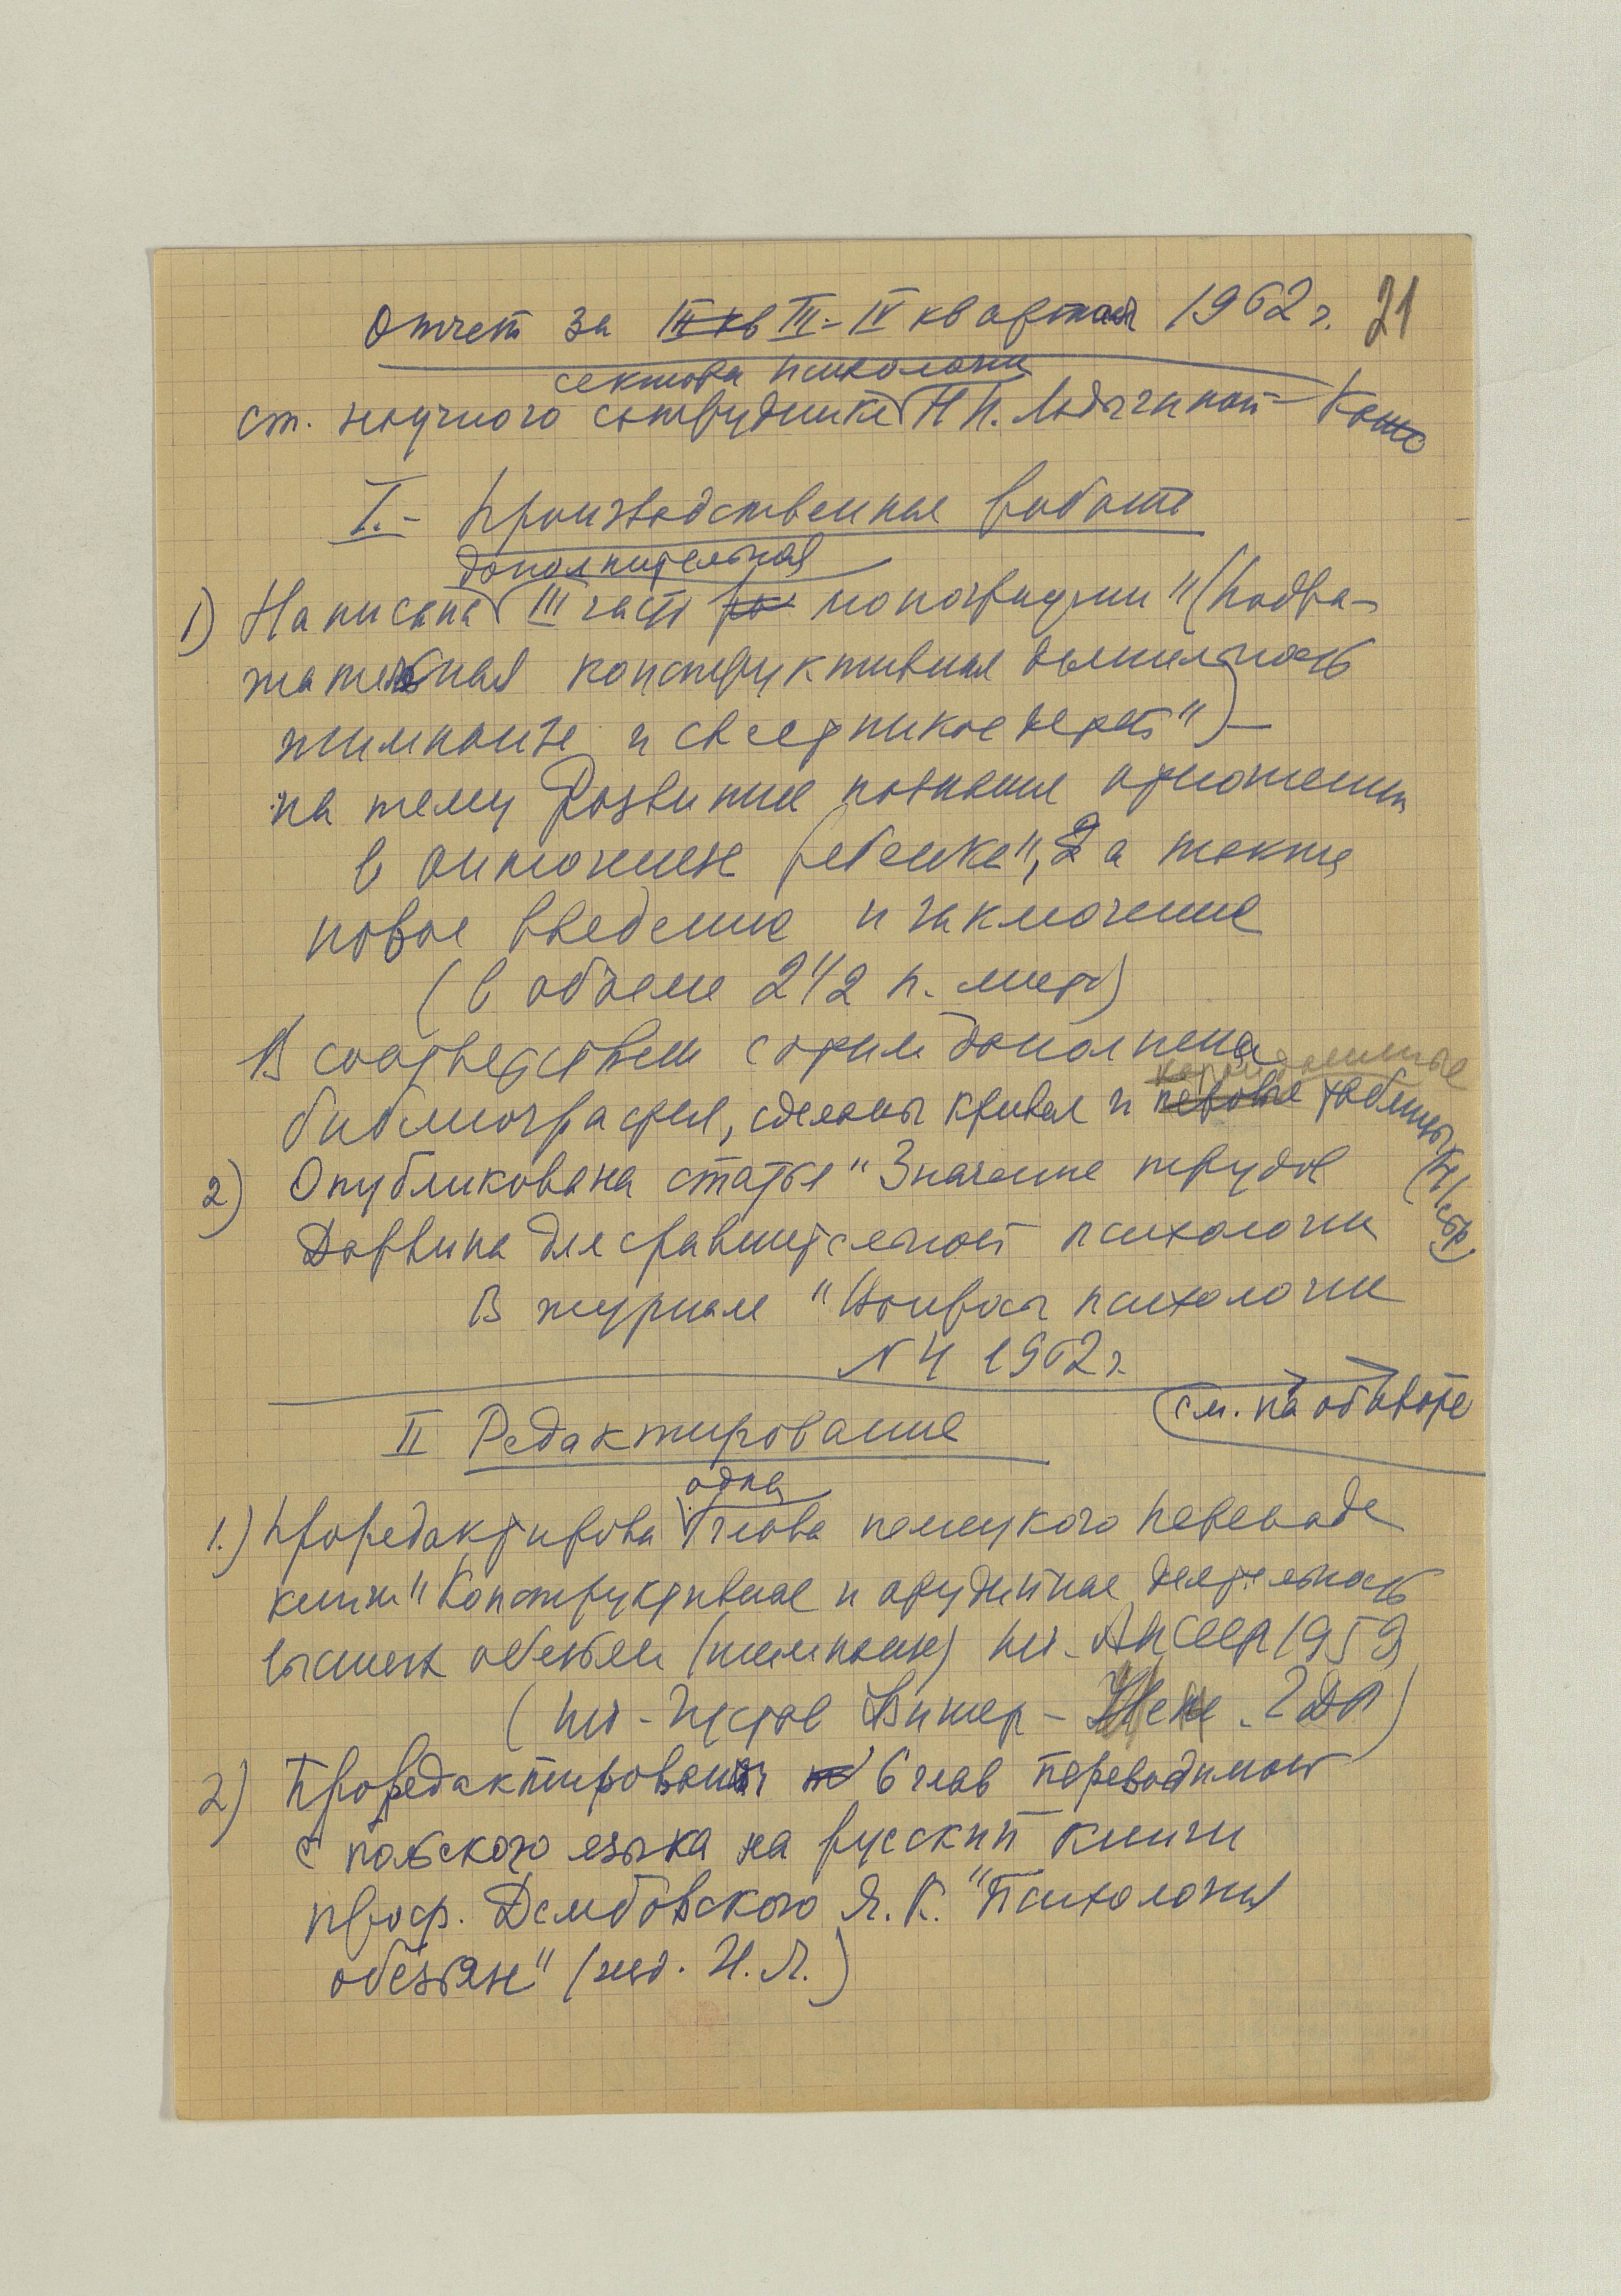 Отчет за III кв III-IV квартал 1962 г. 21
сектора психологии
ст. научного сотрудника Н.Н. Ладыгиной-Котс
I.- Производственная работа
дополнительная
1) Написана III часть монографии "(Подра-
жательная конструктивная деятельность
шимпанзе и сверстников детей")-
на тему Развитие познания
в онтогенезе ребенка", а также
новое введение и заключение
(в объеме 242 п. листа)
В соответствии с этим дополнена
библиография, сделаны кривая и новые таблицы
(41 стр)
2) Опубликована статья "Значение трудов
Дарвина для сравнительной психологии
В журнале "Вопросы психологии
N 4 1962 г.
см. на обороте
II Редактирование
одна
1.) Проредактирова глава немецкого перевода
книги "Конструктивная и орудийная деятельность
высших обезьян (шимпанзе) из-. АН СССР 1959
(из-Густав Фишер - Иене. ГДР)
2) Проредактированы 6 глав переводимой
с польского языка на русский книги
проф. Дембовского Я. К. "Психология
обезьян" (изд. И.Л.)